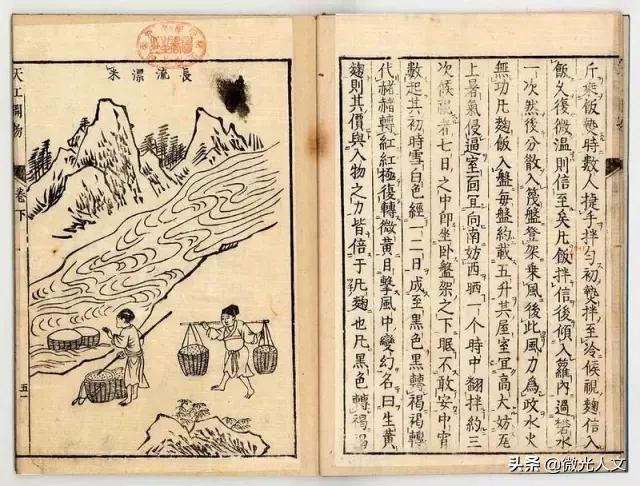 斤乘飯熱時數人捷手拌勻初熱拌至冷候視麹信入
飯久復微溫則信至矣凡飯拌信後傾入籮內過礬水
一次然後分散入篾盤登架乘風後此風力為政水火
無功凡麹飯入盤每盤約載五升其屋室宜高大妨瓦
上暑氣侵逼室面宜向南妨西晒一个時中翻拌約三
次候視者七日之中即坐臥盤架之下眠不敢安中宵
數起其初時雪白色經一二日成至黑色黑轉褐褐轉
代赭赭轉紅紅極復轉微黃目擊風中變幻名曰生黃
麹則其價與入物之力皆倍于凡麹也凡黑色轉褐褐
長流漂米
天工開物
卷下
五一
头条 @微光人文